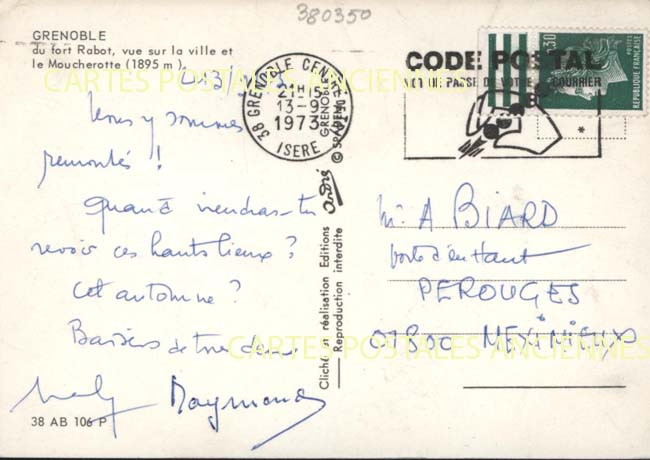 380350
GRENOBLE
du fort Rabot, vue sur la ville et
le Moucherotte (1895 m).
CARTES POSTALES ANCIENNES
Nous y sommes
remontés !
Quand viendras-tu
revoir ces hauts lieux ?
Cet automne ?
Baisers de tous deux
Raymond
38 AB 106 P
38 GRENOBLE CENTRE
21H15
13-9
1973
ISERE
Cliché et réalisation Editions André
Reproduction interdite
GRENOBLE
CODE POSTAL
MOT DE PASSE DE VOTRE COURRIER
0,30
POSTES
REPUBLIQUE FRANÇAISE
*
Mr A BIARD
porte d'en Haut
PEROUGES
01800 MEXIMIEUX
CARTES POSTALES ANCIENNES